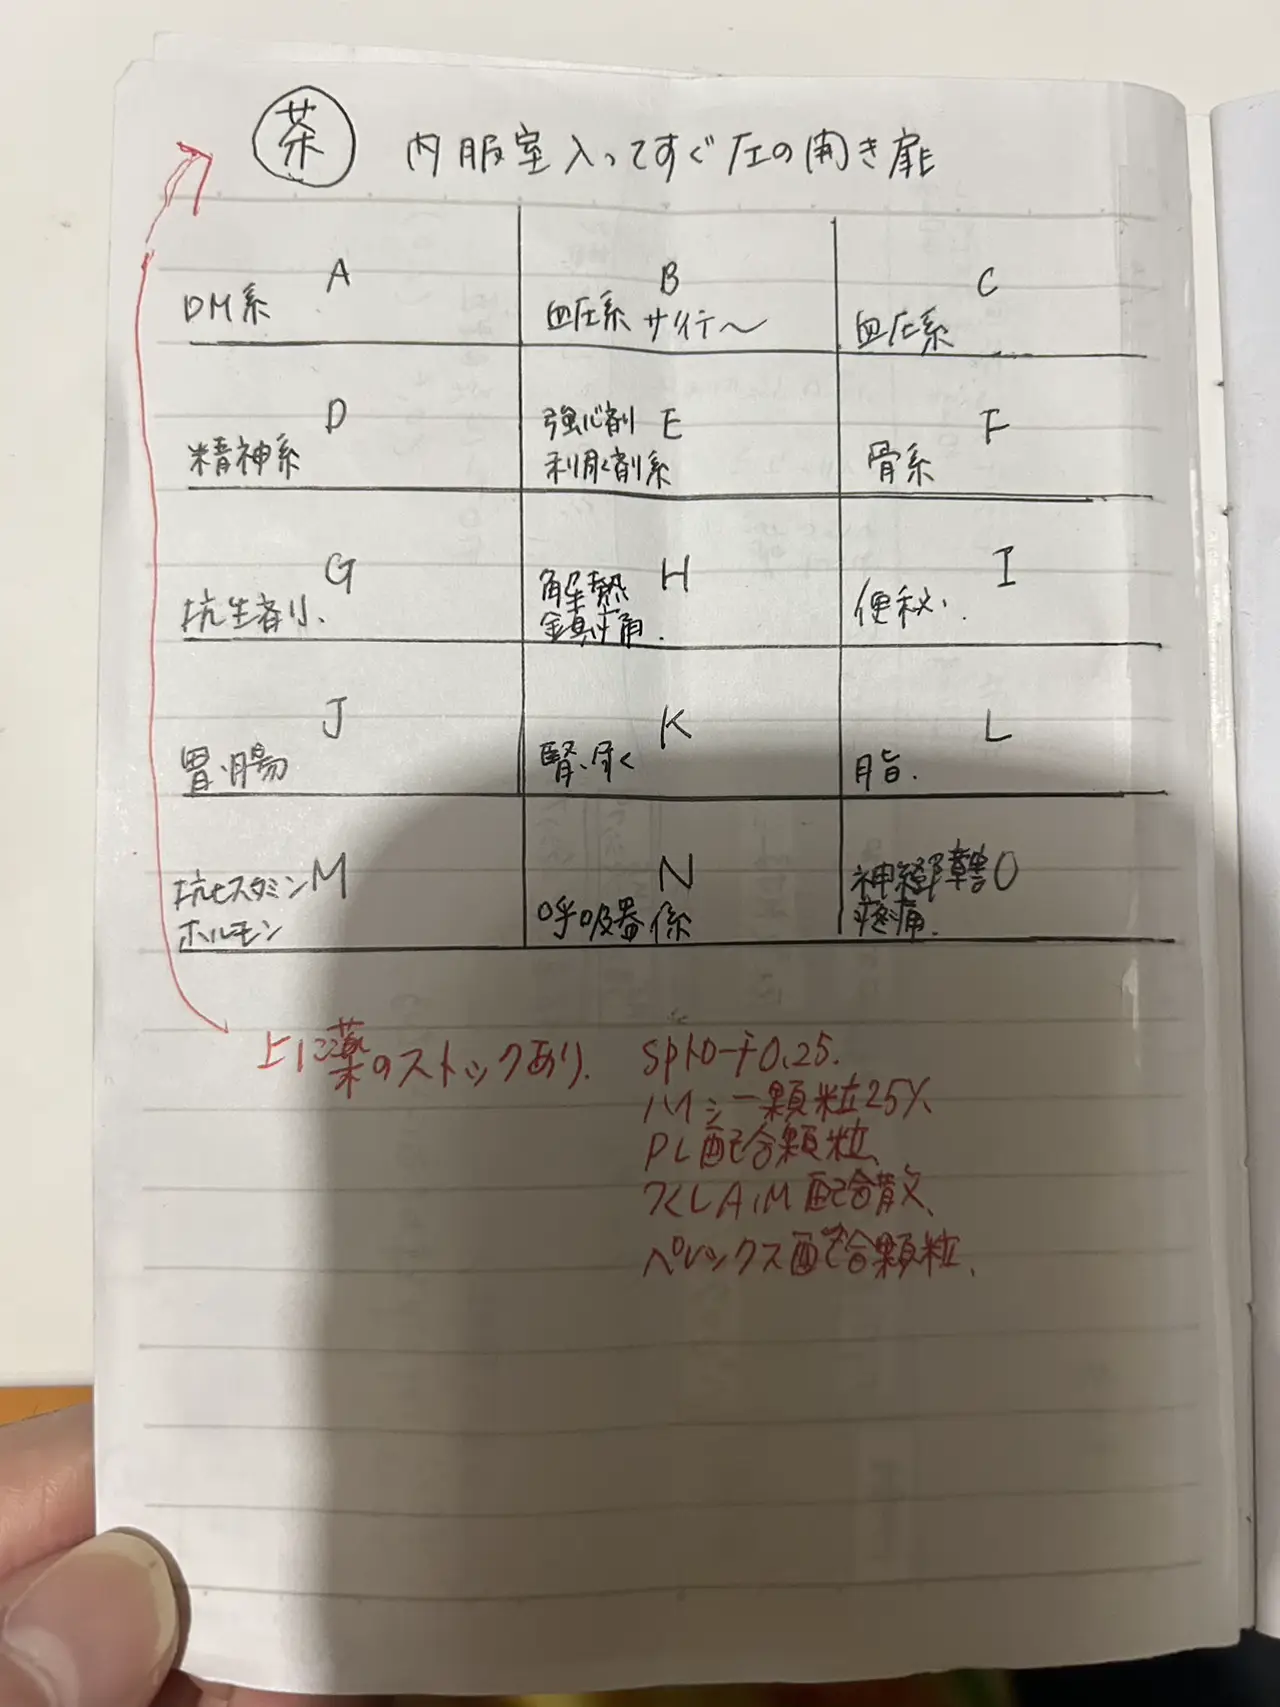 茶 内服室入ってすぐ左の開き扉
A
DM系
B
血圧系 サイテ〜
C
血圧系
D
精神系
強心剤 E
利尿剤系
F
骨系
G
抗生剤.
解熱 H
鎮痛.
I
便秘.
J
胃.腸
K
腎.尿
L
脂.
抗ヒスタミン M
ホルモン
N
呼吸器係
神経障害 O
疼痛.
上に薬のストックあり.
SPトローチ0.25.
ハイシー顆粒25%
PL配合顆粒
つくしA.M配合散、
ペレックス配合顆粒.